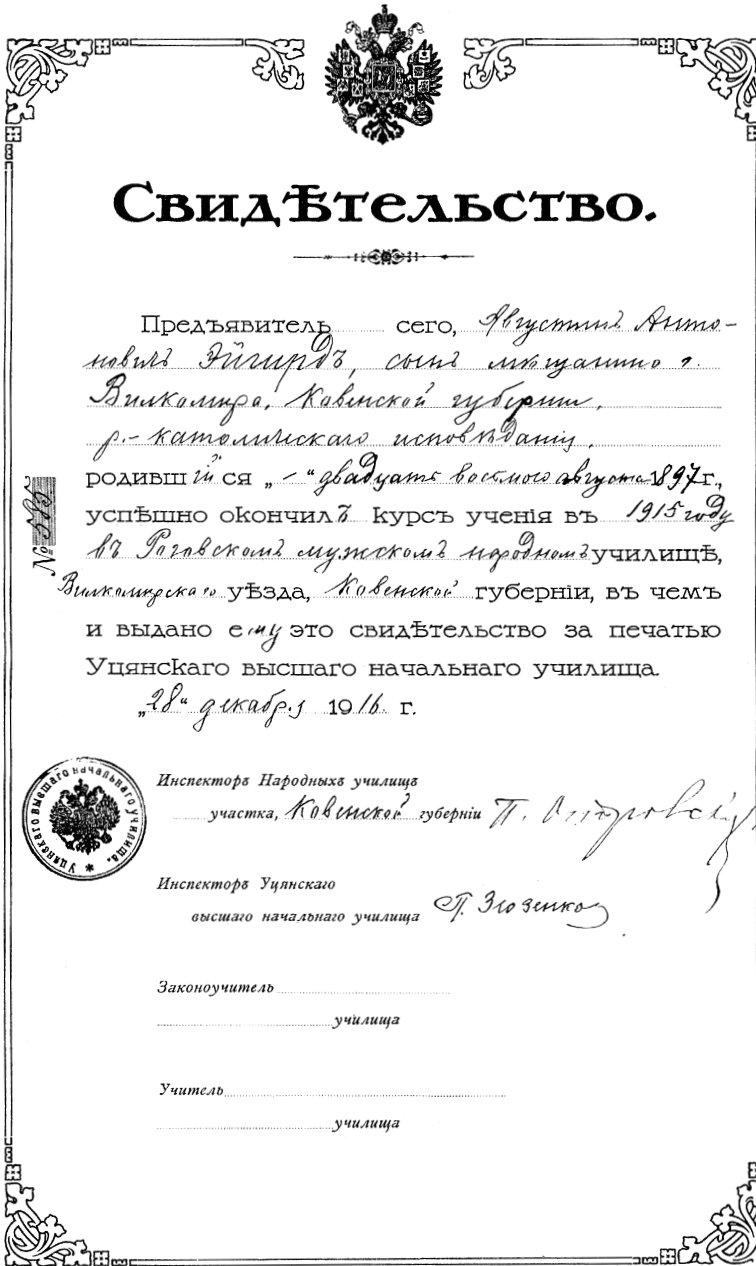 Свидѣтельство.
Предъявитель сего, Августинъ Анто-
новичъ Эйгирдъ, сынъ мѣщанина г.
Вилкомира, Ковенской губерніи,
р.-католическаго исповѣданія,
родившійся „-“ двадцать восьмого августа 1897 г.,
успѣшно окончилъ курсъ ученія въ 1915 году
въ Роговскомъ мужскомъ народномъ училищѣ,
Вилкомирскаго уѣзда, Ковенской губерніи, въ чемъ
и выдано ему это свидѣтельство за печатью
Уцянскаго высшаго начальнаго училища.
„28“ декабря 1916 г.
№ 585
Уцянскаго высшаго начальнаго училища.
Инспекторъ Народныхъ училищъ
участка, Ковенской губерніи П. Островскій
Инспекторъ Уцянскаго
высшаго начальнаго училища П.
Законоучитель
училища
Учитель
училища